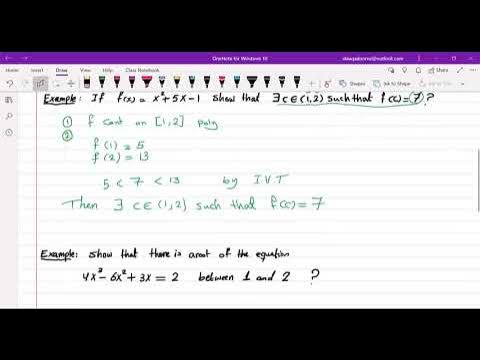 OneNote for Windows 10
Home Insert Draw View Help Class Notebook
Example: If f(x) = x² + 5x - 1 show that ∃ c ∈ (1,2) such that f(c) = 7 ?
① f cont on [1,2] poly
②
f(1) = 5
f(2) = 13
5 < 7 < 13 by I.V.T
Then ∃ c ∈ (1,2) such that f(c) = 7
Example: show that there is a root of the equation
4x³ - 6x² + 3x = 2 between 1 and 2 ?